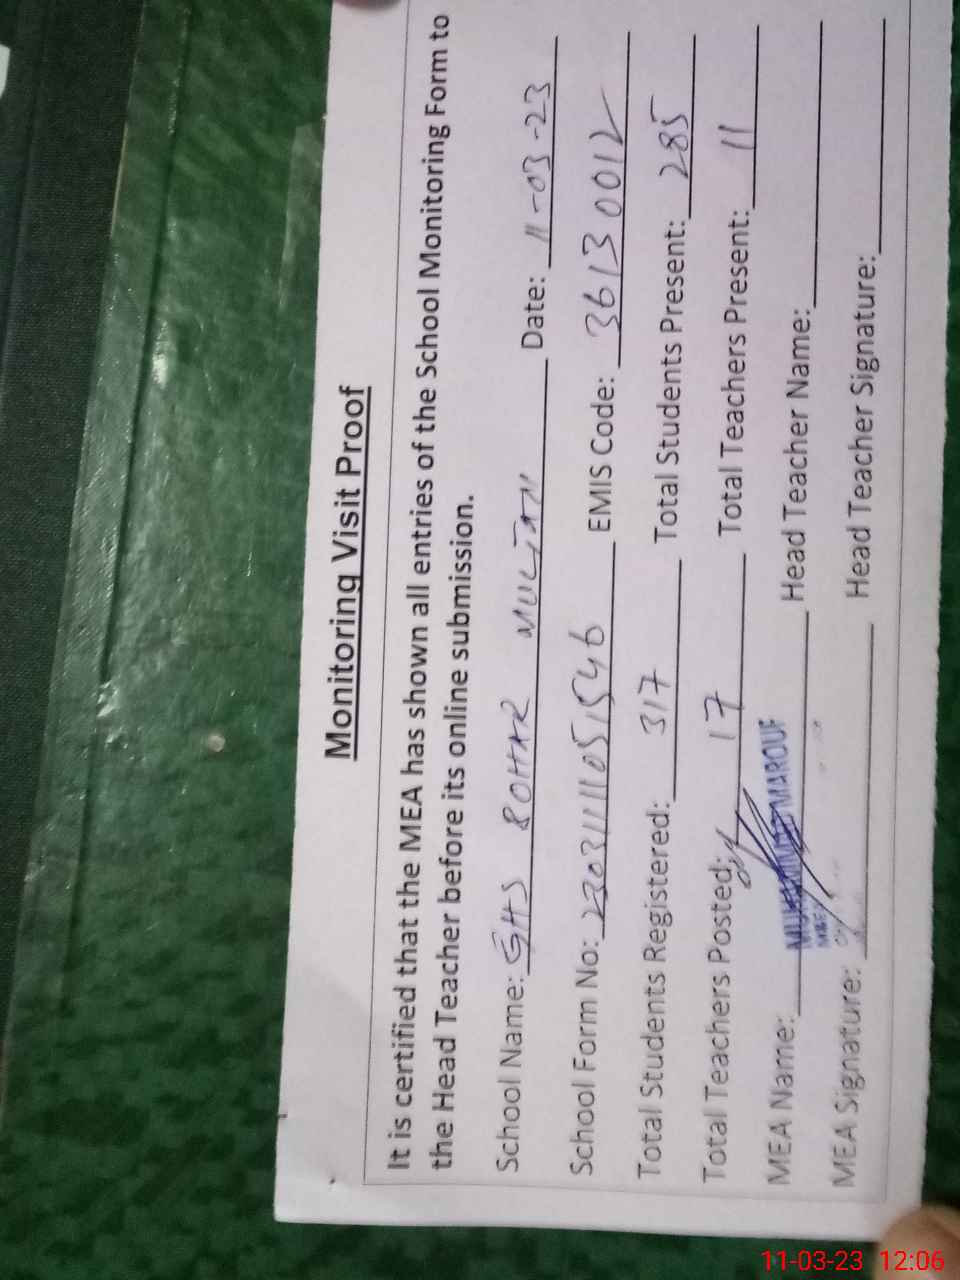 Monitoring Visit Proof
It is certified that the MEA has shown all entries of the School Monitoring Form to
the Head Teacher before its online submission.
School Name: GHS BOHAR MULTAN Date: 11-03-23
School Form No: EMIS Code: 36130012
Total Students Registered: 317 Total Students Present: 285
Total Teachers Posted: 17 Total Teachers Present: 11
MEA Name: MUHAMMAD MAROUF Head Teacher Name:
MEA Signature: Head Teacher Signature:
11-03-23 12:06